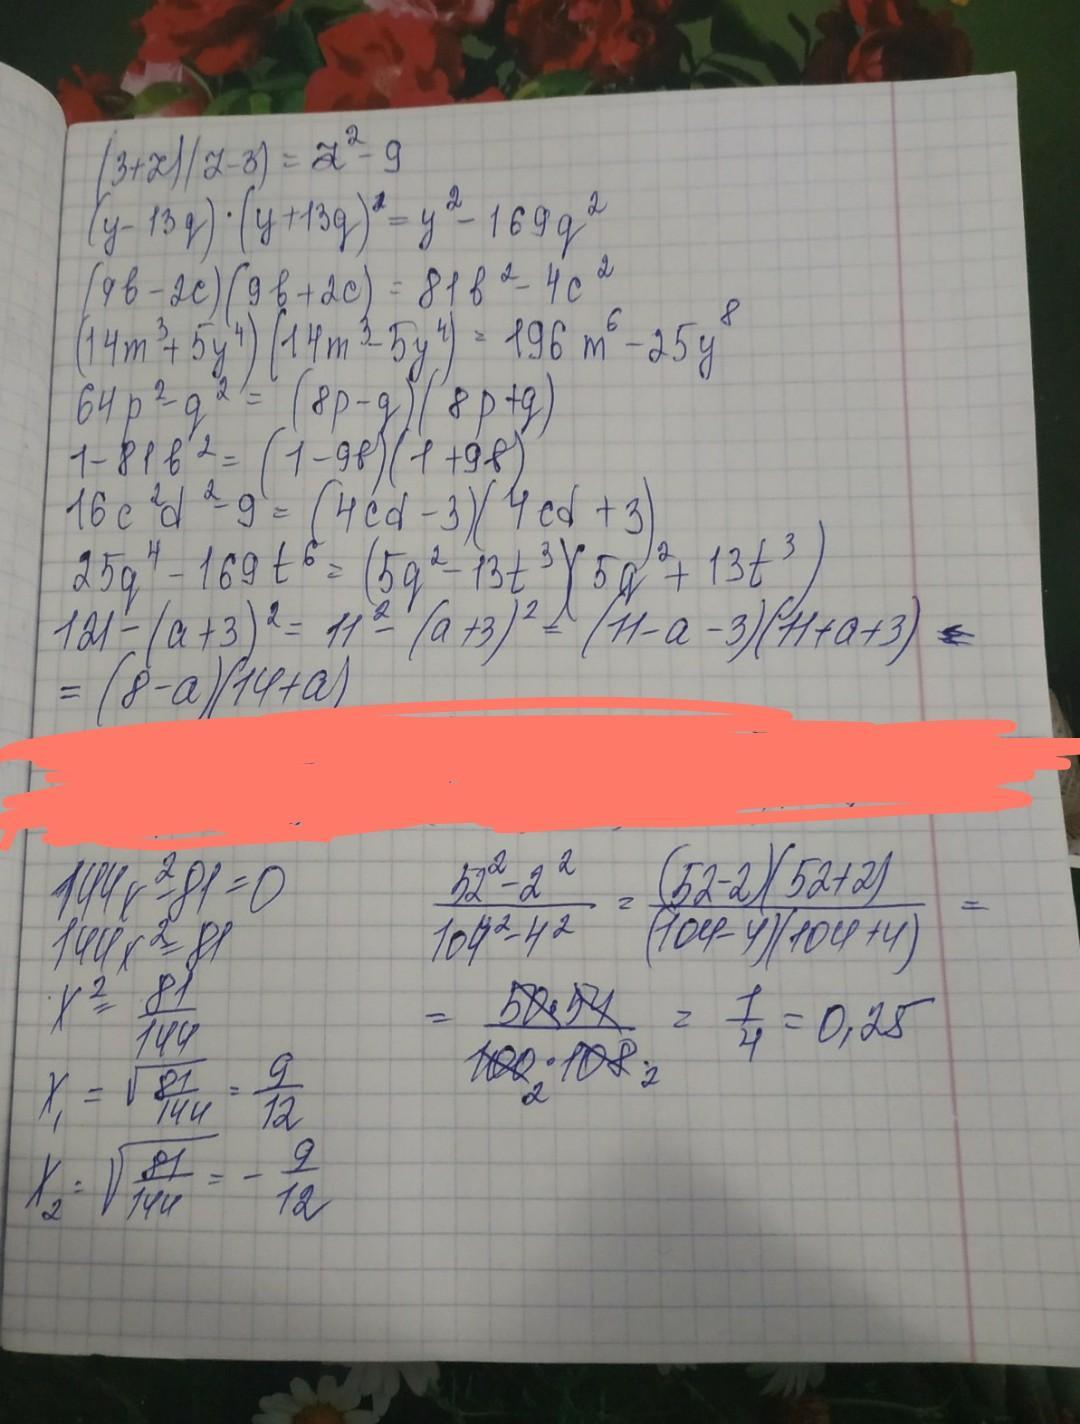 (3+z)(z-3) = z²-9
(y-13q)·(y+13q) = y²-169q²
(9b-2c)(9b+2c) = 81b²-4c²
(14m³+5y⁴)(14m³-5y⁴) = 196m⁶-25y⁸
64p²-q² = (8p-q)(8p+q)
1-81b² = (1-9b)(1+9b)
16c²d²-9 = (4cd-3)(4cd+3)
25q⁴-169t⁶ = (5q²-13t³)(5q²+13t³)
121-(a+3)² = 11²-(a+3)² = (11-a-3)(11+a+3)
= (8-a)(14+a)
144x²-81=0
144x²=81
x² = 81/144
x₁ = √(81/144) = 9/12
x₂ = √(81/144) = -9/12
(52²-2²)/(104²-4²) = ((52-2)(52+2))/((104-4)(104+4)) =
= (50·54)/(100₂·108₂) = 1/4 = 0,25